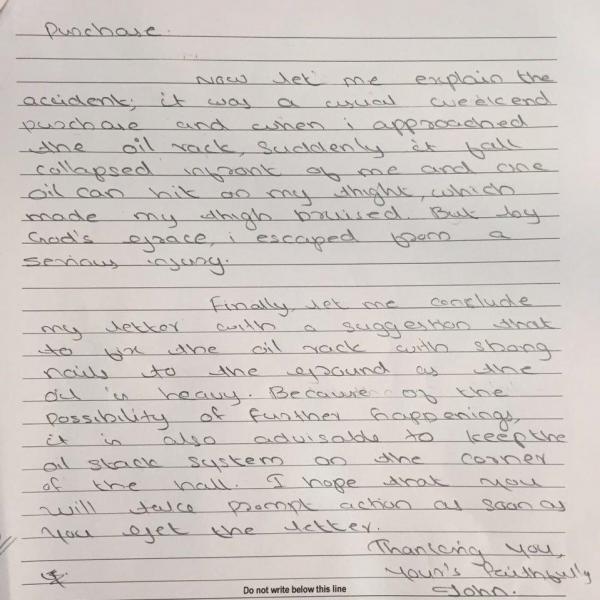 Purchase.
Now let me explain the
accident; it was a usual weekend
purchase and when i approached
the oil rack, suddenly it fall
collapsed infront of me and one
oil can hit on my thight, which
made my thigh bruised. But by
God's grace, i escaped from a
serious injury.
Finally, let me conclude
my letter with a suggestion that
to fix the oil rack with strong
nails to the ground as the
oil is heavy. Because of the
possibility of further happenings,
it is also advisable to keep the
oil stack system on the corner
of the hall. I hope that you
will take prompt action as soon as
you get the letter.
Thanking you,
Your's faithfully
John.
Do not write below this line